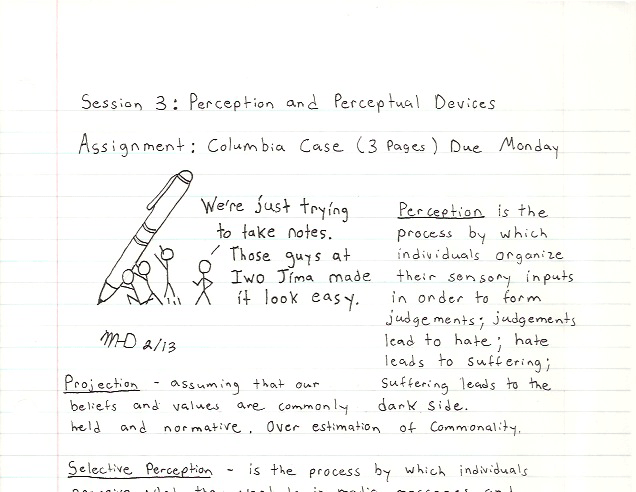 Session 3: Perception and Perceptual Devices
Assignment: Columbia Case (3 Pages) Due Monday
We're just trying
to take notes.
Those guys at
Iwo Jima made
it look easy.
M-D 2/13
Perception is the
process by which
individuals organize
their sensory inputs
in order to form
judgements; judgements
lead to hate; hate
leads to suffering;
suffering leads to the
dark side.
Projection - assuming that our
beliefs and values are commonly
held and normative. Over estimation of Commonality.
Selective Perception - is the process by which individuals